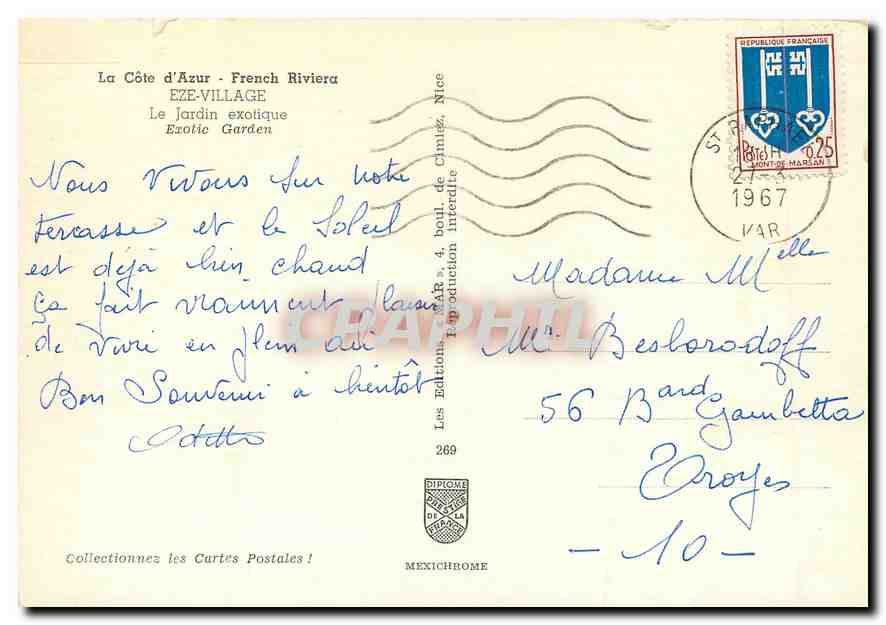 La Côte d'Azur - French Riviera
EZE-VILLAGE
Le Jardin exotique
Exotic Garden
Nous vivons sur notre
terrasse et le Soleil
est déjà bien chaud
ça fait vraiment plaisir
de vivre en plein air
Bon Souvenir à bientôt
Odette
Les Editions « MAR », 4, boul. de Cimiez, Nice
Reproduction interdite
269
DIPLOME
PRESTIGE
DE LA
FRANCE
MEXICHROME
Collectionnez les Cartes Postales !
REPUBLIQUE FRANÇAISE
POSTES 0,25
MONT-DE-MARSAN
ST RAPHAEL
1967
VAR
Madame Melle
Mr Besborodoff
56 Bard Gambetta
Troyes
- 10 -
CPAPHIL